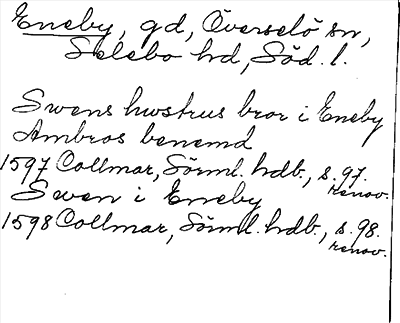 Eneby, gd, Överselö sn,
Selebo hd, Söd. l.
Swens hwstrus bror i Eneby
Ambros benemd
1597 Collmar, Sörml. hdb., s. 97.
renov.
Swen i Eneby
1598 Collmar, Sörml. hdb., s. 98.
renov.